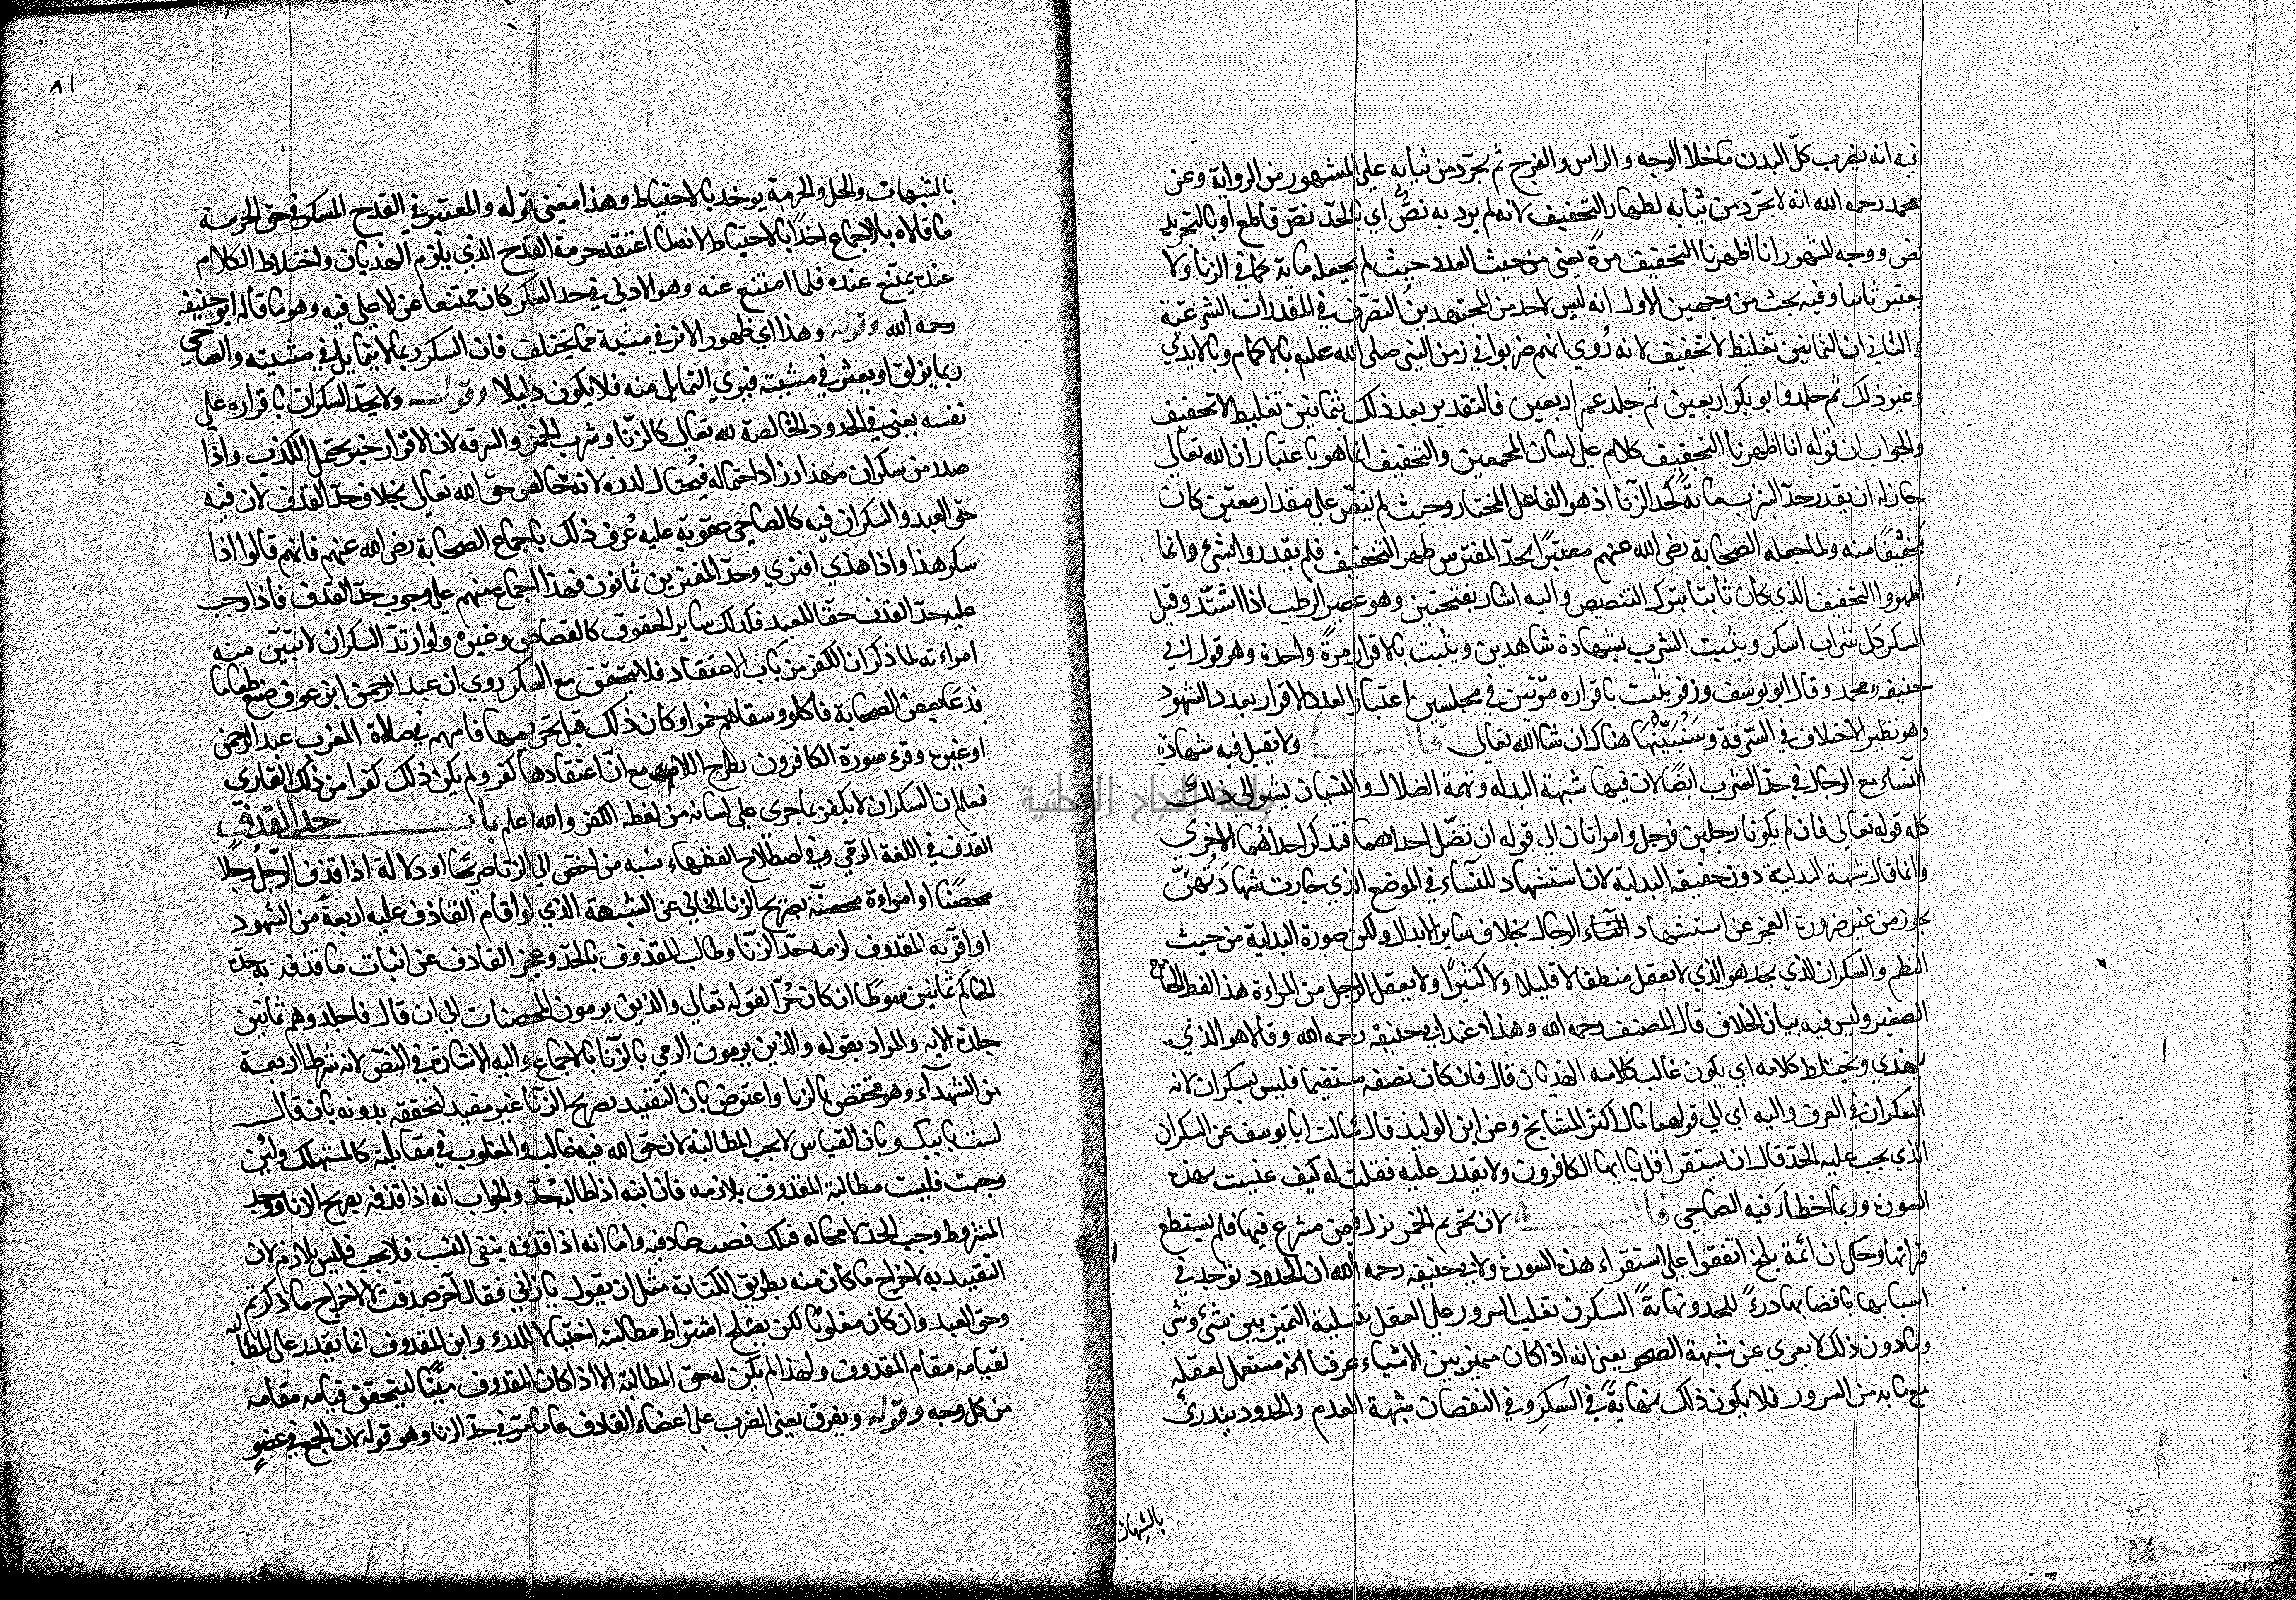 فيه انه يضرب كلّ البدن ما خلا الوجه والراس والفرج ثم يجرّد من ثيابه على المشهور من الرواية وعن
محمد رحمه الله انه لا يجرّد من ثيابه لظهار التخفيف لانه لم يرد به نصٌّ اي بالحدّ نصّ قاطع او بالتجريد
نص ووجه المشهور انا اظهرنا التخفيف مرةً يعنى من حيث العدد حيث لم يجعله ماية كما في الزنا ولا
يعتبر ثانيا وفيه بحث من وجهين الاول انه ليس لاحد من المجتهدين التصرّف في المقدرات الشرعيّة
والثاني ان الثمانين تغليظ لا تخفيف لانه رُوي انهم ضربوا في زمن النبى صلى الله عليه بالاكمام وبالايدي
وغير ذلك ثم جلدوا ابو بكر اربعين ثم جلد عمر اربعين فالتقدير بعد ذلك بثمانين تغليظ لا تخفيف
والجواب ان قوله انا اظهرنا التخفيف كلام على لسان المجمعين والتخفيف انما هو باعتبار ان الله تعالى
جاز له ان يقدر حدّ الشرب بماية كحدّ الزنا اذ هو الفاعل المختار وحيث لم ينصّ على مقدار معيّن كان
تخفيفًا منه ولما جعله الصحابة رضى الله عنهم معتبرًا بحدّ المفترين ظهر التخفيف فلم يقدروا بشئ وانما
اظهروا التخفيف الذي كان ثابتا بترك التنصيص واليه اشار بفتحتين وهو عصير الرطب اذا اشتدّ وقيل
السكر كل شراب اسكر ويثبت الشرب بشهادة شاهدين ويثبت بالاقرار مرةً واحدة وهو قول ابي
حنيفه ومحمد وقال ابو يوسف وزفر يثبت باقراره مرّتين في مجلسين اعتبار العدد الاقرار بعدد الشهود
وهو نظير الاختلاف في السّرقة وسنُبَيّنُهَا هناك ان شا الله تعالى قال ولا يقبل فيه شهادة
النساء مع الرجال في حدّ الشرب ايضًا لان فيها شبهة البدله وتهمة الضلال والنسيان يشير الي ذلك
كله قوله تعالى فان لم يكونا رجلين فرجل وامراتان الى قوله ان تضّل احداهما فتذكر احداهما الاخرى
وانما قال شبهة البدلية دون حقيقه البدلية لان استشهاد للنساء في الموضع الذي جازت شهادتُهنَّ
يجوز من غير ضرورة العجز عن استشهاد الرجال بخلاف ساير الابدال ولكن صورة البداية من حيث
النظم والسكران الذي يحد هو الذي لا يعقل منطقا لا قليلا ولا كثيرًا ولا يعقل الرجل من المراءة هذا لفظ الجامع
الصغير وليس فيه بيان الخلاف قال المصنف رحمه الله وهذا عند ابي حنيفه رحمه الله وقالا هو الذي
يهذي ويختلط كلامه اي يكون غالب كلامه الهذيان قال فان كان نصفه مستقيما فليس بسكران لانه
السكران في العرف واليه اي الي قولهما مال اكثر المشايخ وعن ابن الوليد قال سالت ابا يوسف عن السكران
الذي يجب عليه الحدّ قال ان يستقرا قل يا ايها الكافرون ولا يقدر عليه فقلت له كيف عنيت هذه
السورة وربما اخطاءَ فيه الصاحي قال لان تحريم الخمر نزل فيمن شرع فيها فلم يستطع
قراتها وحكي ان ائمة بلخ اتفقوا على استقراء هذه السورة ولابي حنيفه رحمه الله ان الحدود توجد في
اسبابها باقصاها درءً للحد ونهايةً السكر ان تغلب السرور على العقل بتسلية التميز بين شئ وشئ
وما دون ذلك لا يعرى عن شبهة الصحو يعني انه اذا كان مميز بين الاشياء عرفنا انه مستعمل لعقله
مع ما به من السرور فلا يكون ذلك نهايةً في السكر وفي النقصان شبهة العدم والحدود يندرئ
بالشبهات
٨١
بالشبهات والحل والحرمة يوخذ بالاحتياط وهذا معنى قوله والمعتبر في القدح المسكر في حق الحرمة
ما قالاه بالاجماع اخذًا بالاحتياط لانه لما اعتقد حرمة القدح الذي يلزم الهذيان واختلاط الكلام
عنده يمتنع عنده فلما امتنع عنه وهو الادنى في حد السكر كان ممتنعا عن الاعلى فيه وهو ما قاله ابو حنيفه
رحمه الله وقوله وهذا اي ظهور الاثر في مشية مما يختلف فان السكر ربما لا يتمايل في مشيته والصاحي
ربما يزلق او يعثر في مشيته فيري التمايل منه فلا يكون دليلا وقوله ولا يحدّ السكران باقراره على
نفسه يعنى في الحدود الخالصة لله تعالى كالزنا وشرب الخمر والسرقه لان الاقرار خبر يحتمل الكذب واذا
صدر من سكران مهذار زاد احتماله فيُحتال لدرءه لانه خالص حق الله تعالى بخلاف حدّ القذف لان فيه
حق العبد والسكران فيه كالصاحي عقوبة عليه عُرف ذلك باجماع الصحابة رضى الله عنهم فانهم قالوا اذا
سكر هذا واذا هذي افتري وحدّ المفترين ثمانون فهذا اجماع منهم على وجوب حدّ القذف فاذا وجب
عليه حدّ القذف حقّا للعبد فكذلك ساير الحقوق كالقصاص وغيره ولو ارتدّ السكران لا تبيّن منه
امراءته لما ذكر ان الكفر من باب الاعتقاد فلا يتحقق مع السكر روي ان عبد الرحمن ابن عوف صنع طعاما
فدعا بعض الصحابة فاكلوا وسقاهم خمرا وكان ذلك قبل تحريمها فامهم في صلاة المغرب عبد الرحمن
او غيره وقرء سورة الكافرون بطرح اللات مع انّ اعتقادها كفر ولم يكن ذلك كفرا من ذلك القارى
فعلم ان السكران لا يكفر بما جرى على لسانه من لفظه الكفر والله اعلم باب حدّ القذف
القذف في اللغة الرمي وفي اصطلاح الفقهاء نسبه من احصن الي الزنا صريحًا او دلالة اذا قذف الرّجل رجلا
محصنًا او امراءة محصنّة بصريح الزنا الخالي عن الشبهة الذي لو اقام القاذف عليه اربعةً من الشهود
او اقرّ به المقذوف لزمه حدّ الزنا وطالب المقذوف بالحدّ وعجز القاذف عن اثبات ما قذفه به حدّه
الحاكم ثمانين سوطًا ان كان حُرّا لقوله تعالى والذين يرمون المحصنات الى ان قال فاجلدوهم ثمانين
جلدة الايه والمراد بقوله والذين يرمون الرمي بالزنا بالاجماع واليه الاشارة في النصّ لانه شرط اربعة
من الشهدآء وهو مختص بالزنا واعترض بان التقييد بصريح الزنا غير مفيد لتحققه بدونه بان قال
لست بابيك وبان القياس لا يجب المطالبة لان حق الله فيه غالب والمغلوب في مقابلته كالمستهلك ولئن
وجبت فليست مطالبة المقذوف بلازمه فان ابنه اذا طالبه حُدّ والجواب انه اذا قذفه بصريح الزنا ووجد
الشروط وجب الحد لا محاله فتلك قضيه صادقه واما انه اذا قذفه بنفى النسب فلا يجب فليس بلازم لان
التقييد به لاخراج ما كان منه بطريق الكناية مثل ان يقول يا زاني فقال آخر صدقت لا لاخراج ما ذكرتم
وحق العبد وان كان مغلوبًا لكن يصلح اشتراط مطالبته احتيالا للدرء وابن المقذوف انما يقدر على المطالبة
لقيامه مقام المقذوف ولهذا لم يكن له حق المطالبة الا اذا كان المقذوف ميّتًا ليتحقق قيامه مقامه
من كل وجه وقوله ويفرق يعنى الضرب على اعضاء القاذف على ما مرّ في حدّ الزنا وهو قوله لان الجمع في عضوٍ